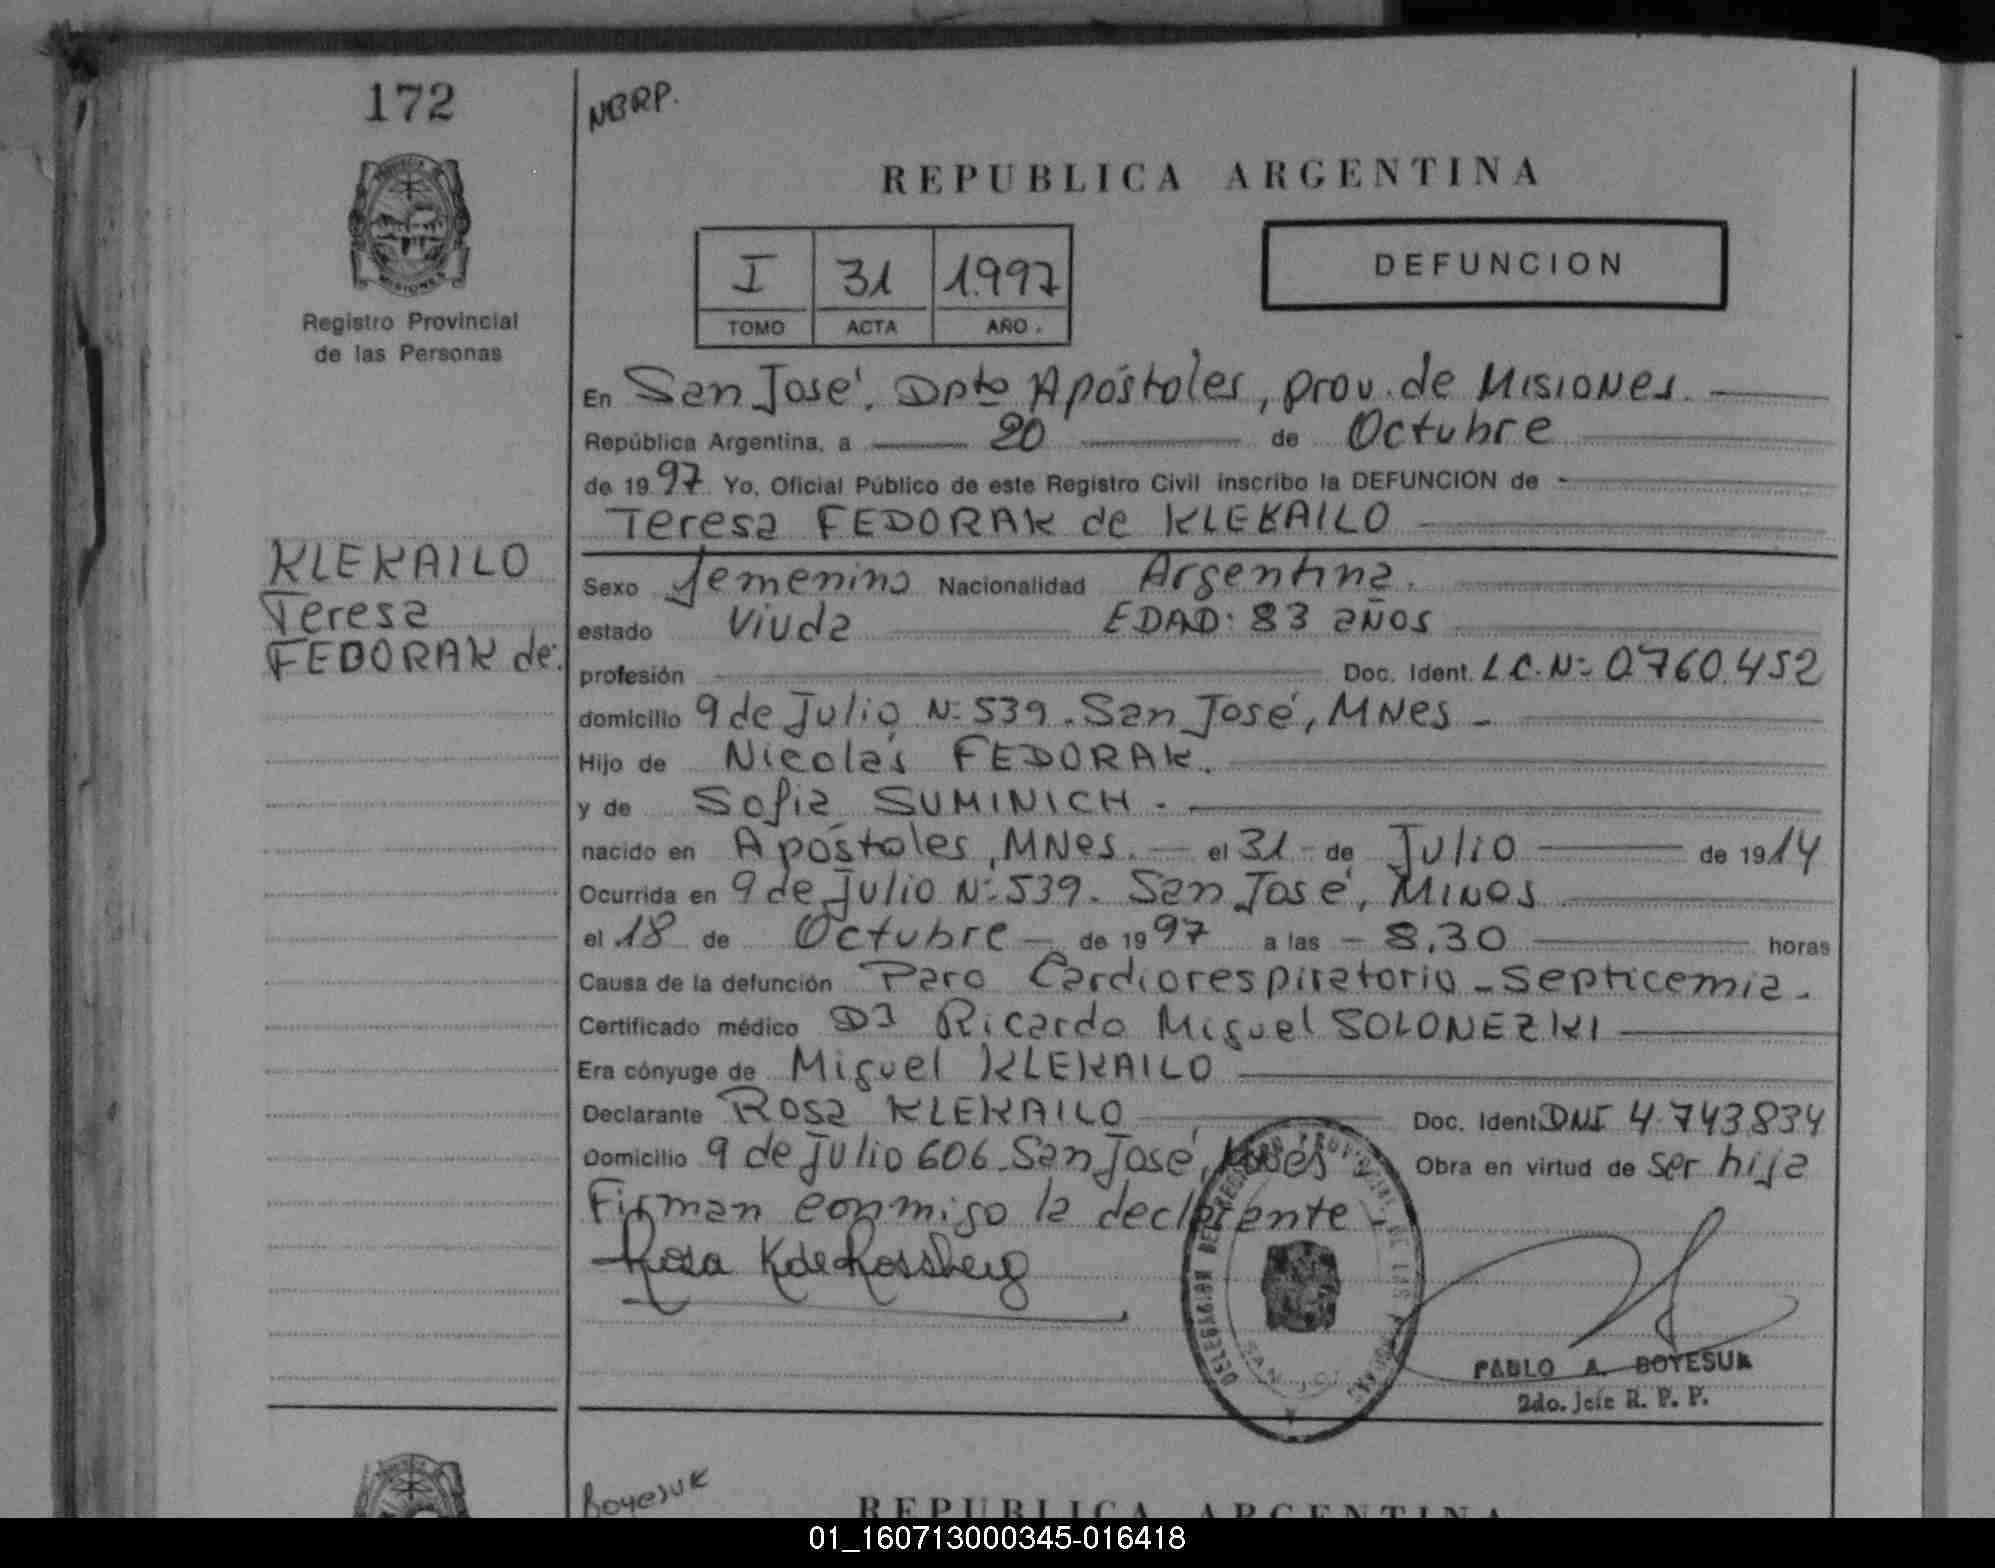 172
NBRP.
REPUBLICA ARGENTINA
PROVINCIA
MISIONES
Registro Provincial
de las Personas
I 31 1.997
TOMO ACTA AÑO.
DEFUNCION
En San José. Dpto Apóstoles, prov. de Misiones.
República Argentina, a 20 de Octubre
de 1997 Yo, Oficial Público de este Registro Civil inscribo la DEFUNCION de
Teresa FEDORAK de KLEKAILO
KLEKAILO
Teresa
FEDORAK de.
Sexo femenino Nacionalidad Argentina.
estado Viuda EDAD: 83 años
profesión Doc. Ident. L.C.Nº 0.760.452
domicilio 9 de Julio Nº 539. San José, MNes -
Hijo de Nicolás FEDORAK.
y de Sofia SUMINICH.
nacido en Apóstoles, MNes. el 31 de Julio de 1914
Ocurrida en 9 de Julio Nº 539. San José,
el 18 de Octubre de 1997 a las 8,30 horas
Causa de la defunción Paro Cardiorespiratorio - Septicemia.
Certificado médico Dr Ricardo Miguel SOLONEZKI
Era cónyuge de Miguel KLEKAILO
Declarante Rosa KLEKAILO Doc. Ident. DNI 4.743.834
Domicilio 9 de Julio 606. San José, MNes Obra en virtud de ser hija
Firman conmigo la declarante.
Rosa K de Rossberg
DELEGACION DEL REGISTRO PROVINCIAL DE LAS PERSONAS
SAN JOSE
PABLO A. BOYESUK
2do. Jefe R. P. P.
Boyesuk
REPUBLICA ARGENTINA
01_160713000345-016418